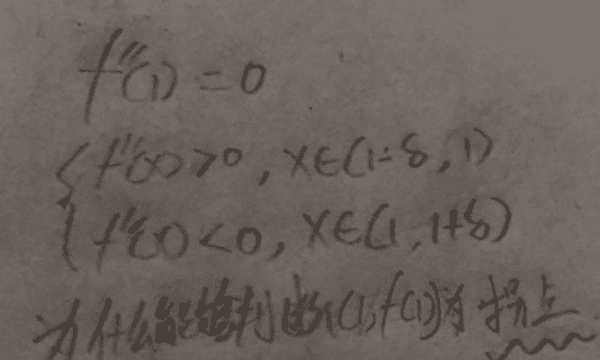 f''(1)=0
{ f''(x)>0, x∈(1-δ, 1)
f''(x)<0, x∈(1, 1+δ)
为什么能够判断(1,f(1))为拐点